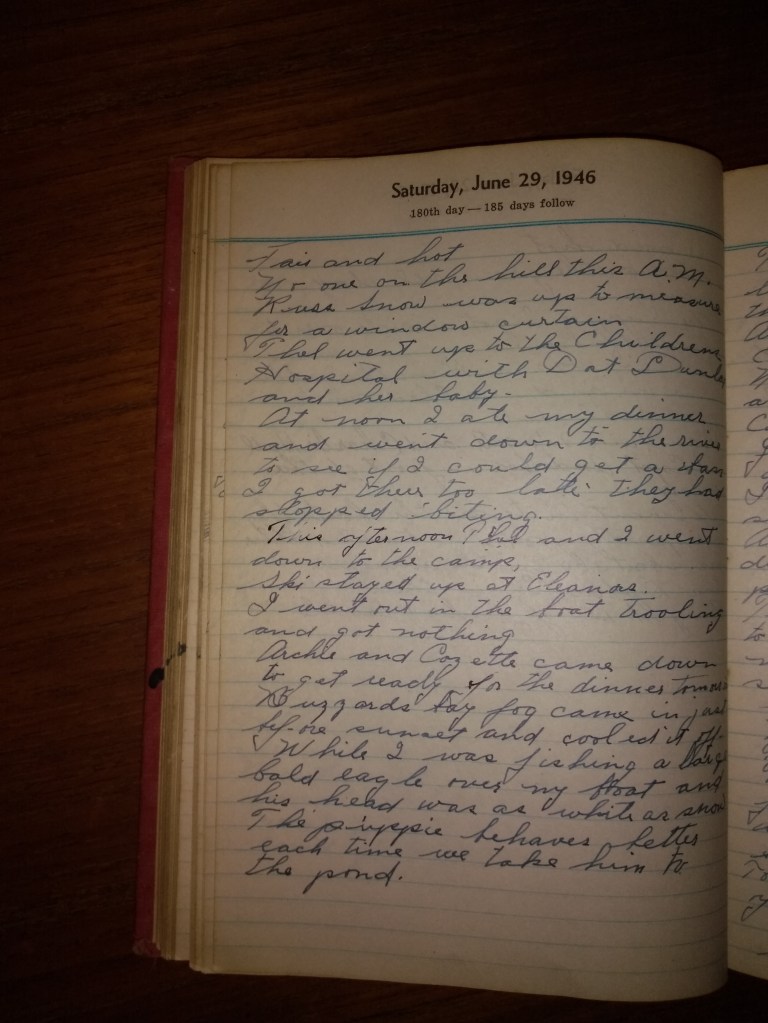 Saturday, June 29, 1946
180th day — 185 days follow
Fair and hot
No one on the hill this A.M.
Russ Snow was up to measure
for a window curtain
Phel went up to the Childrens
Hospital with Dot
and her baby.
At noon I ate my dinner
and went down to the river
to see if I could get a
I got there too late they had
stopped biting.
This afternoon Phel and I went
down to the camp,
Ski stayed up at Eleanors.
I went out in the boat trooling
and got nothing
Archie and Cozette came down
to get ready for the dinner
Buzzards bay fog came in just
before sunset and cooled it off.
While I was fishing a
bald eagle over my boat and
his head was as white as snow
The puppie behaves better
each time we take him to
the pond.